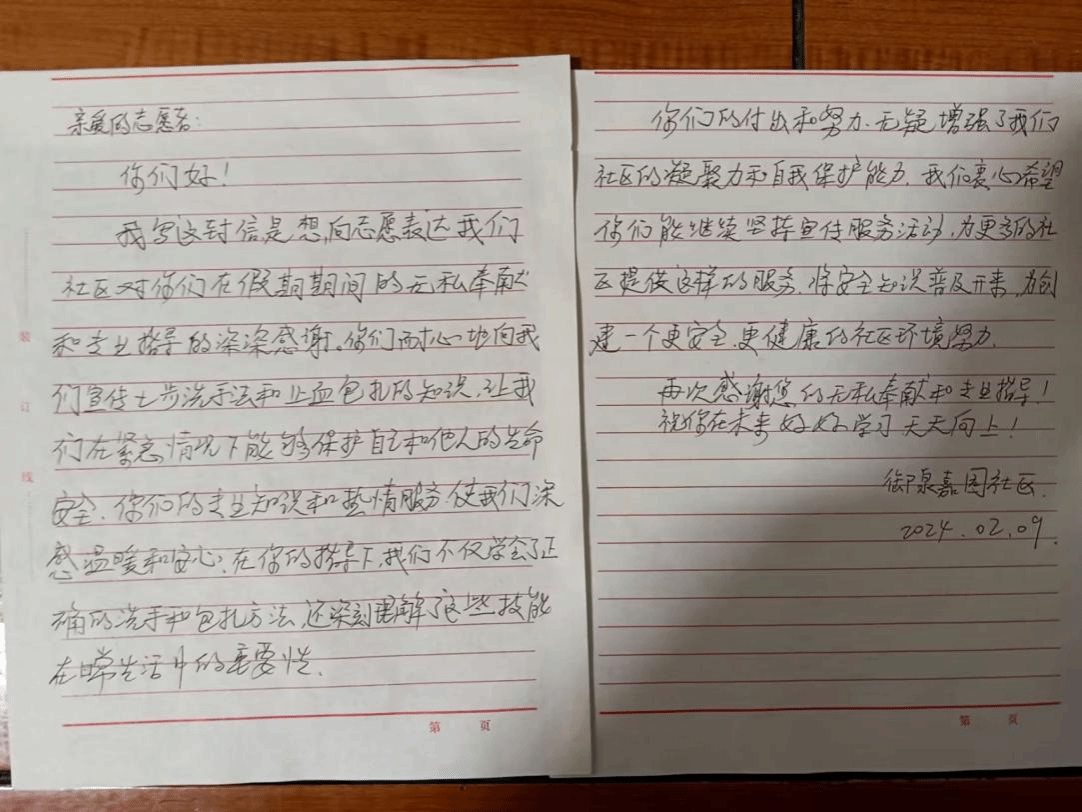 亲爱的志愿者:
你们好!
我写这封信,是想向志愿表达我们
社区对你们在假期期间的无私奉献
和专业指导的深深感谢。你们耐心地向我
们宣传七步洗手法和止血包扎的知识,让我
们在紧急情况下能够保护自己和他人的生命
安全.你们的专业知识和热情服务使我们深
感温暖和安心.在你的指导下,我们不仅学会了正
确的洗手和包扎方法,还深刻理解了这些技能
在日常生活中的重要性.
第 页
装
订
线
你们的付出和努力.无疑增强了我们
社区的凝聚力和自我保护能力.我们衷心希望
你们能继续坚持宣传服务活动,为更多的社
区提供这样的服务.将安全知识普及开来,为创
建一个更安全.更健康的社区环境努力.
再次感谢您的无私奉献和专业指导!
祝你在未来好好学习 天天向上!
御泉嘉园社区.
2024.02.09.
第 页